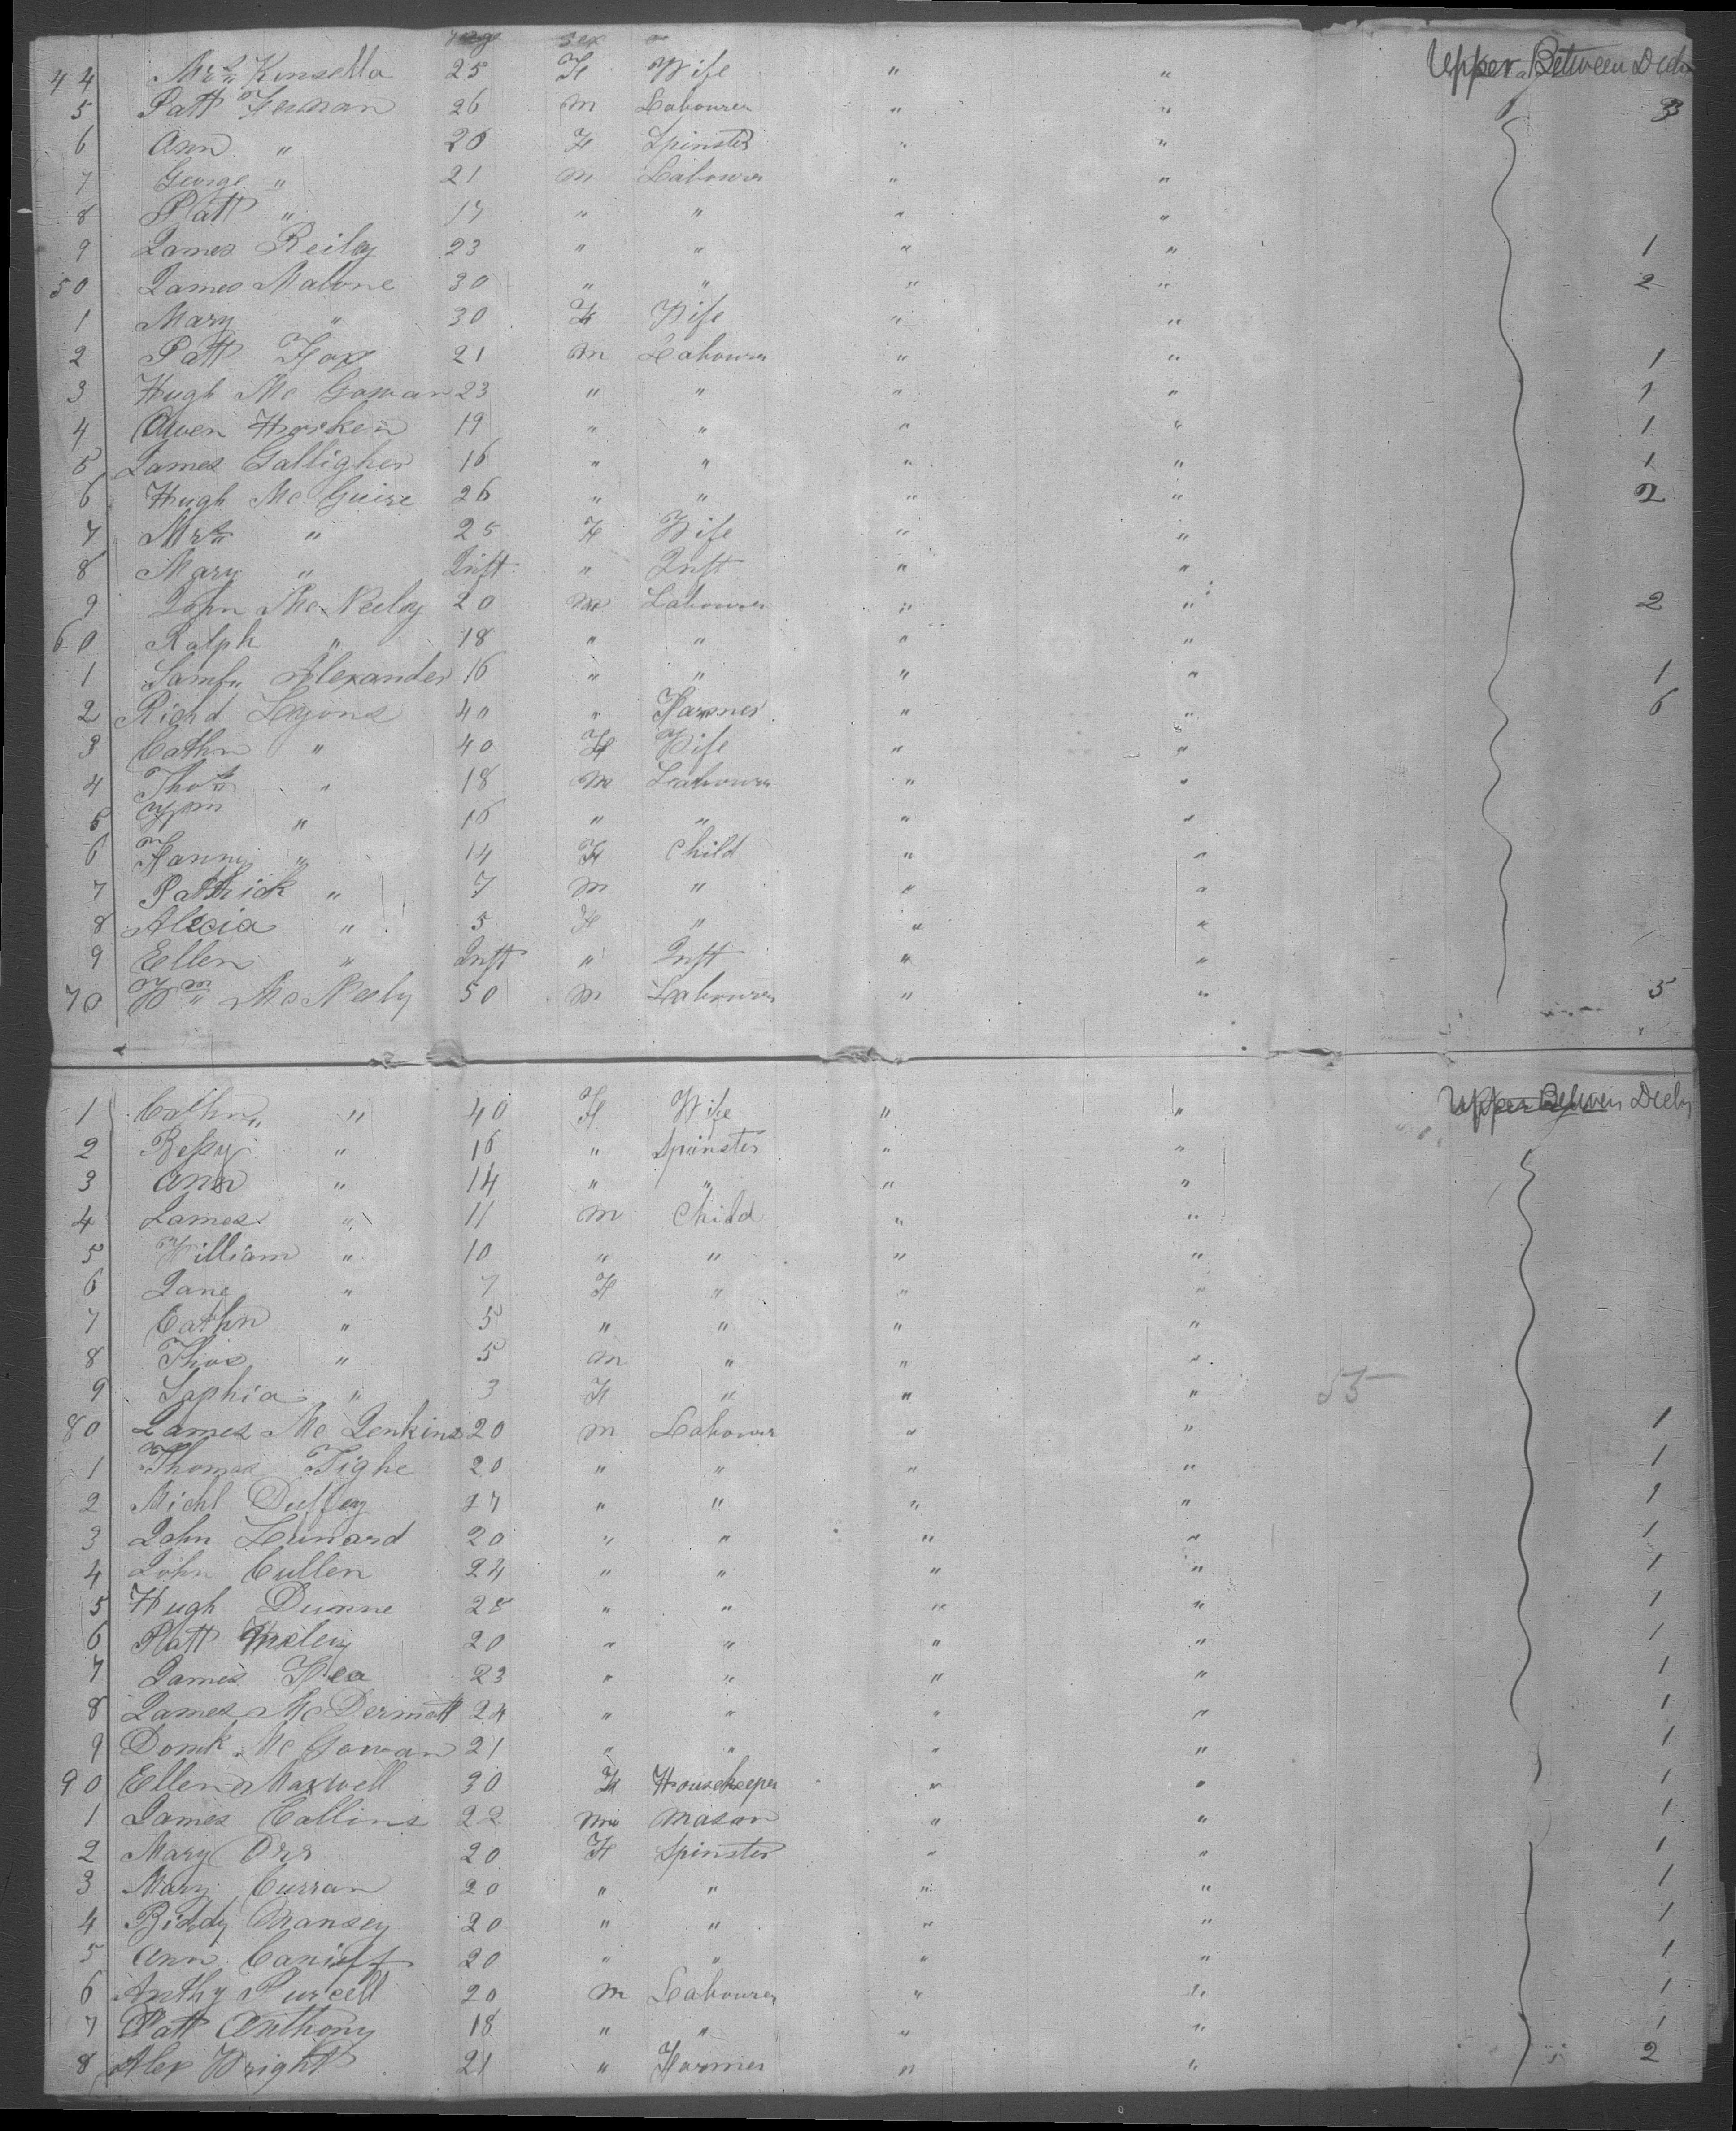 Age Sex
44 Mrs Kinsella 25 F Wife " " Upper Between Decks
5 Patt 26 M Labourer " " 3
6 Ann " 20 F Spinster " "
7 George " 21 M Labourer " "
8 Patt " 17 " " " "
9 James Reiley 23 " " " " 1
50 James Malone 30 " " " " 2
1 Mary " 30 F Wife " "
2 Patt Fox 21 M Labourer " " 1
3 Hugh Mc Gowan 23 " " " " 1
4 Owen Harken 19 " " " " 1
5 James Galligher 16 " " " " 1
6 Hugh Mc Guire 26 " " " " 2
7 Mrs " 25 F Wife " "
8 Mary " Inft " Inft " "
9 John Mc Neeley 20 M Labourer " " 2
60 Ralph " 18 " " " "
1 Saml Alexander 16 " " " " 1
2 Richd Lyons 40 " Farmer " " 6
3 Cathn " 40 F Wife " "
4 Thos " 18 M Labourer " "
5 Wm " 16 " " " "
6 Fanny " 14 F Child " "
7 Patrick " 7 M " " "
8 Alicia " 5 F " " "
9 Ellen " Inft " Inft " "
70 Wm Mc Neely 50 M Labourer " " 5
1 Cathn " 40 F Wife " " Upper Between Decks
2 Bessy " 16 " Spinster " "
3 Ann " 14 " " " "
4 James " 11 M Child " "
5 William " 10 " " " "
6 Jane " 7 F " " "
7 Cathn " 5 " " " "
8 Thos " 5 M " " "
9 Sophia " 3 F " " " 53
80 James Mc Jenkins 20 M Labourer " " 1
1 Thomas Tighe 20 " " " " 1
2 Michl Duffey 17 " " " " 1
3 John Lennard 20 " " " " 1
4 John Cullen 24 " " " " 1
5 Hugh Dunne 28 " " " " 1
6 Patt 20 " " " " 1
7 James Fea 23 " " " " 1
8 James McDermott 24 " " " " 1
9 Domk Mc Gowan 21 " " " " 1
90 Ellen Maxwell 30 F Housekeeper " " 1
1 James Collins 22 M Mason " " 1
2 Mary Orr 20 F Spinster " " 1
3 Mary Curran 20 " " " " 1
4 Biddy Mansey 20 " " " " 1
5 Ann 20 " " " " 1
6 Anthy Purcell 20 M Labourer " " 1
7 Patt Anthony 18 " " " " 1
8 Alex Wright 21 " Farmer " " 2